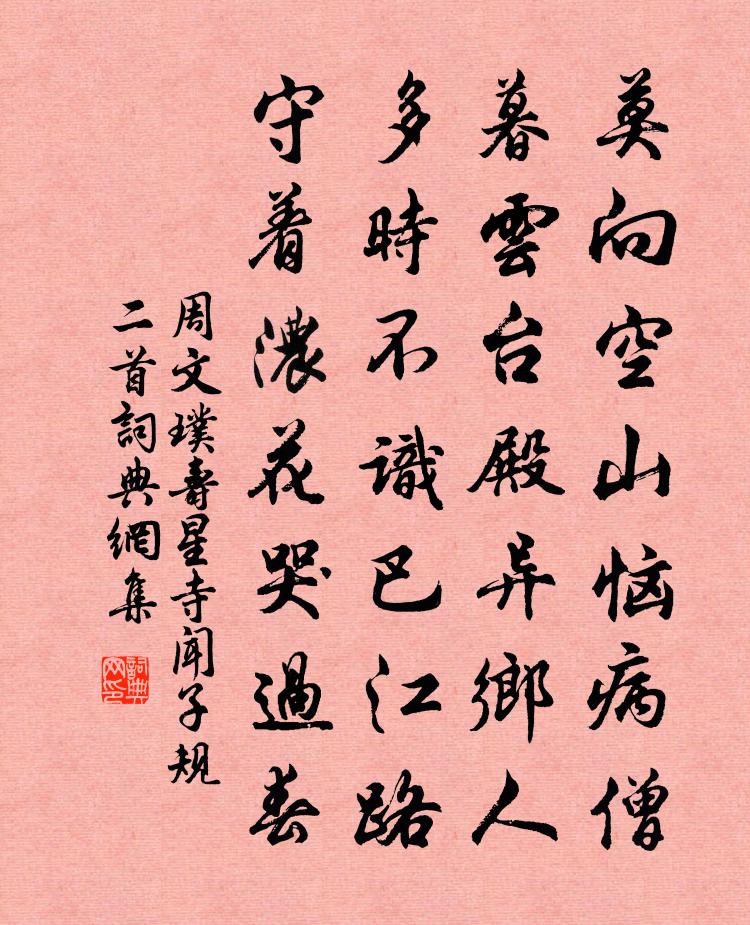 莫向空山恼病僧
暮雲台殿异鄉人
多時不識巴江路
守着濃花哭過春
周文璞壽星寺聞子規
二首詞典網集
詞典
网印